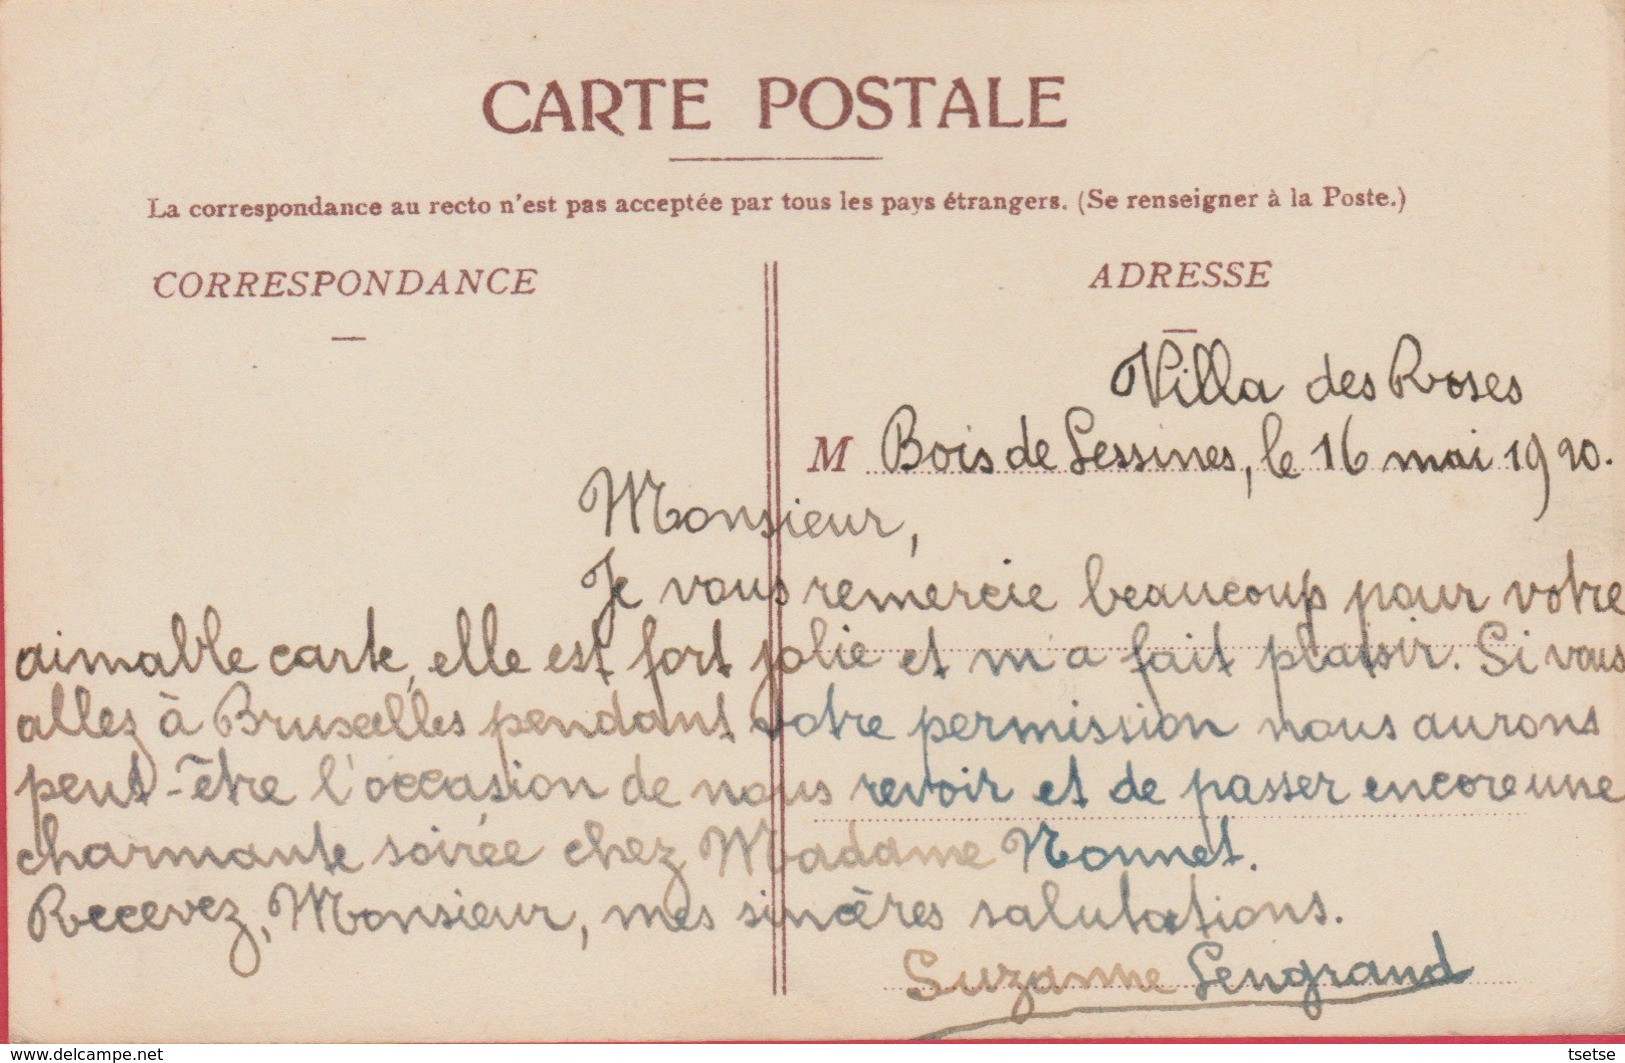 CARTE POSTALE
La correspondance au recto n'est pas acceptée par tous les pays étrangers. (Se renseigner à la Poste.)
CORRESPONDANCE
ADRESSE
Villa des Roses
M Bois de Lessines, le 16 mai 1920.
Monsieur,
Je vous remercie beaucoup pour votre
aimable carte, elle est fort jolie et m'a fait plaisir. Si vous
allez à Bruxelles pendant votre permission nous aurons
peut-être l'occasion de nous revoir et de passer encore une
charmante soirée chez Madame Nonnet.
Recevez, Monsieur, mes sincères salutations.
Suzanne Lengrand
www.delcampe.net
tsetse